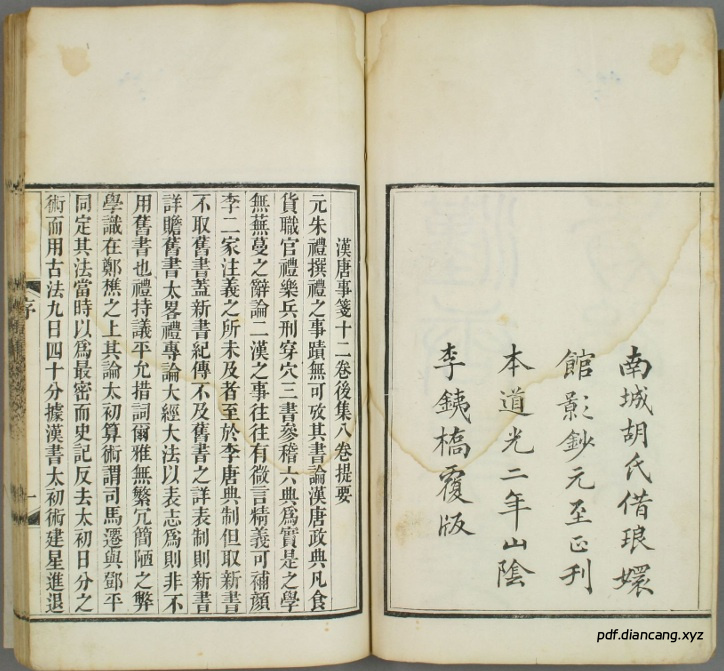 南城胡氏借琅嬛
館影鈔元至正刊
本道光二年山陰
李銕橋覆版
漢唐事箋十二卷後集八卷提要
元朱禮撰禮之事蹟無可攷其書論漢唐政典凡食
貨職官禮樂兵刑穿穴三書參稽六典爲實是之學
無蕪蔓之辭論二漢之事往往有微言精義可補顔
李二家注義之所未及者至於李唐典制但取新書
不取舊書蓋新書紀傳不及舊書之詳表制則新書
詳贍舊書太畧禮專論大經大法以表志爲則非不
用舊書也禮持議平允措詞爾雅無繁冗簡陋之弊
學識在鄭樵之上其論太初算術謂司馬遷與鄧平
同定其法當時以爲最密而史記反去太初日分之
術而用古法九日四十分據漢書太初術建星進退
序
一
pdf.diancang.xyz